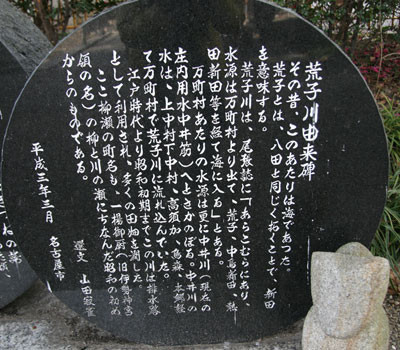 荒子川由来碑
その昔、このあたりは海であった。
荒子とは、八田と同じく拓くことで、新田
を意味する。
荒子川は、尾敷誌に「あらこむらにあり、
水源は万町村より出て、荒子、中島新田、熱
田新田等を経て海に入る」とある。
万町村あたりの水源は更に中井川(現在の
庄内用水中井筋)へとさかのぼる。中井川の
水は、上中村下中村、高須加、烏森、本郷経
て万町村で荒子川に流れ込んでいた。
江戸時代より昭和初期までこの川は排水路
として利用され、多くの田畑を潤した。
ここ柳瀬の町名も、一楊御厨(旧伊勢神宮
領の名)の柳と川の瀬にちなんだ昭和の初め
からのものである。
平成三年三月 名古屋市
選文 山田寂雀